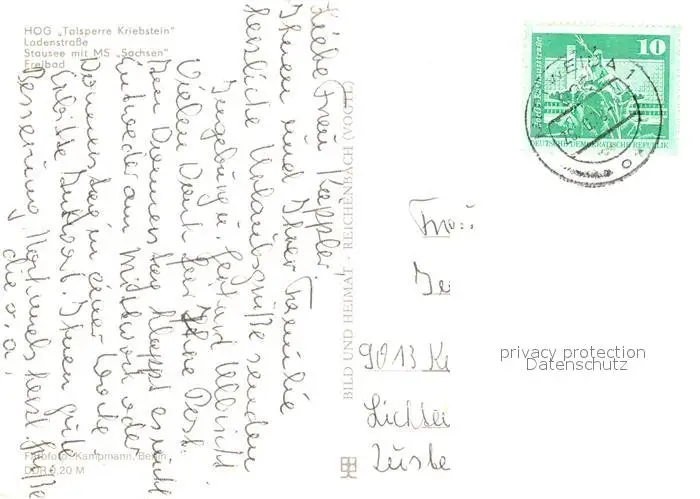 HOG „Talsperre Kriebstein"
Ladenstraße
Stausee mit MS „Sachsen"
Freibad
Liebe Frau Kappler,
Ihnen und Ihrer Familie
herzliche Urlaubsgrüße senden
Ingeburg u. Gerhard Ulbricht
Vielen Dank für Ihre Post.
Den Donnerstag klappt es nicht
Entweder am Mittwoch oder
Donnerstag in einer Woche.
Erbitte Antwort. Ihnen gute
Besserung. Nochmals herzl. Grüße
die o.a.
BILD UND HEIMAT · REICHENBACH (VOGTL)
Fotofoto Kampmann, Berlin
DDR 0,20 M
10
DEUTSCHE DEMOKRATISCHE REPUBLIK
Frau
9013 K
Lichte
privacy protection
Datenschutz